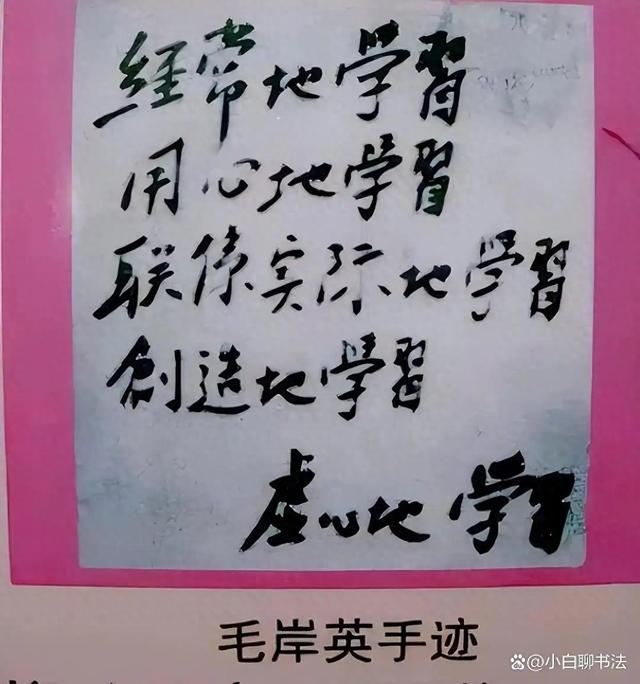 經常地學習
用心地學習
联係实际地學習
創造地學習
虚心地学習
毛岸英手迹
@小白聊书法